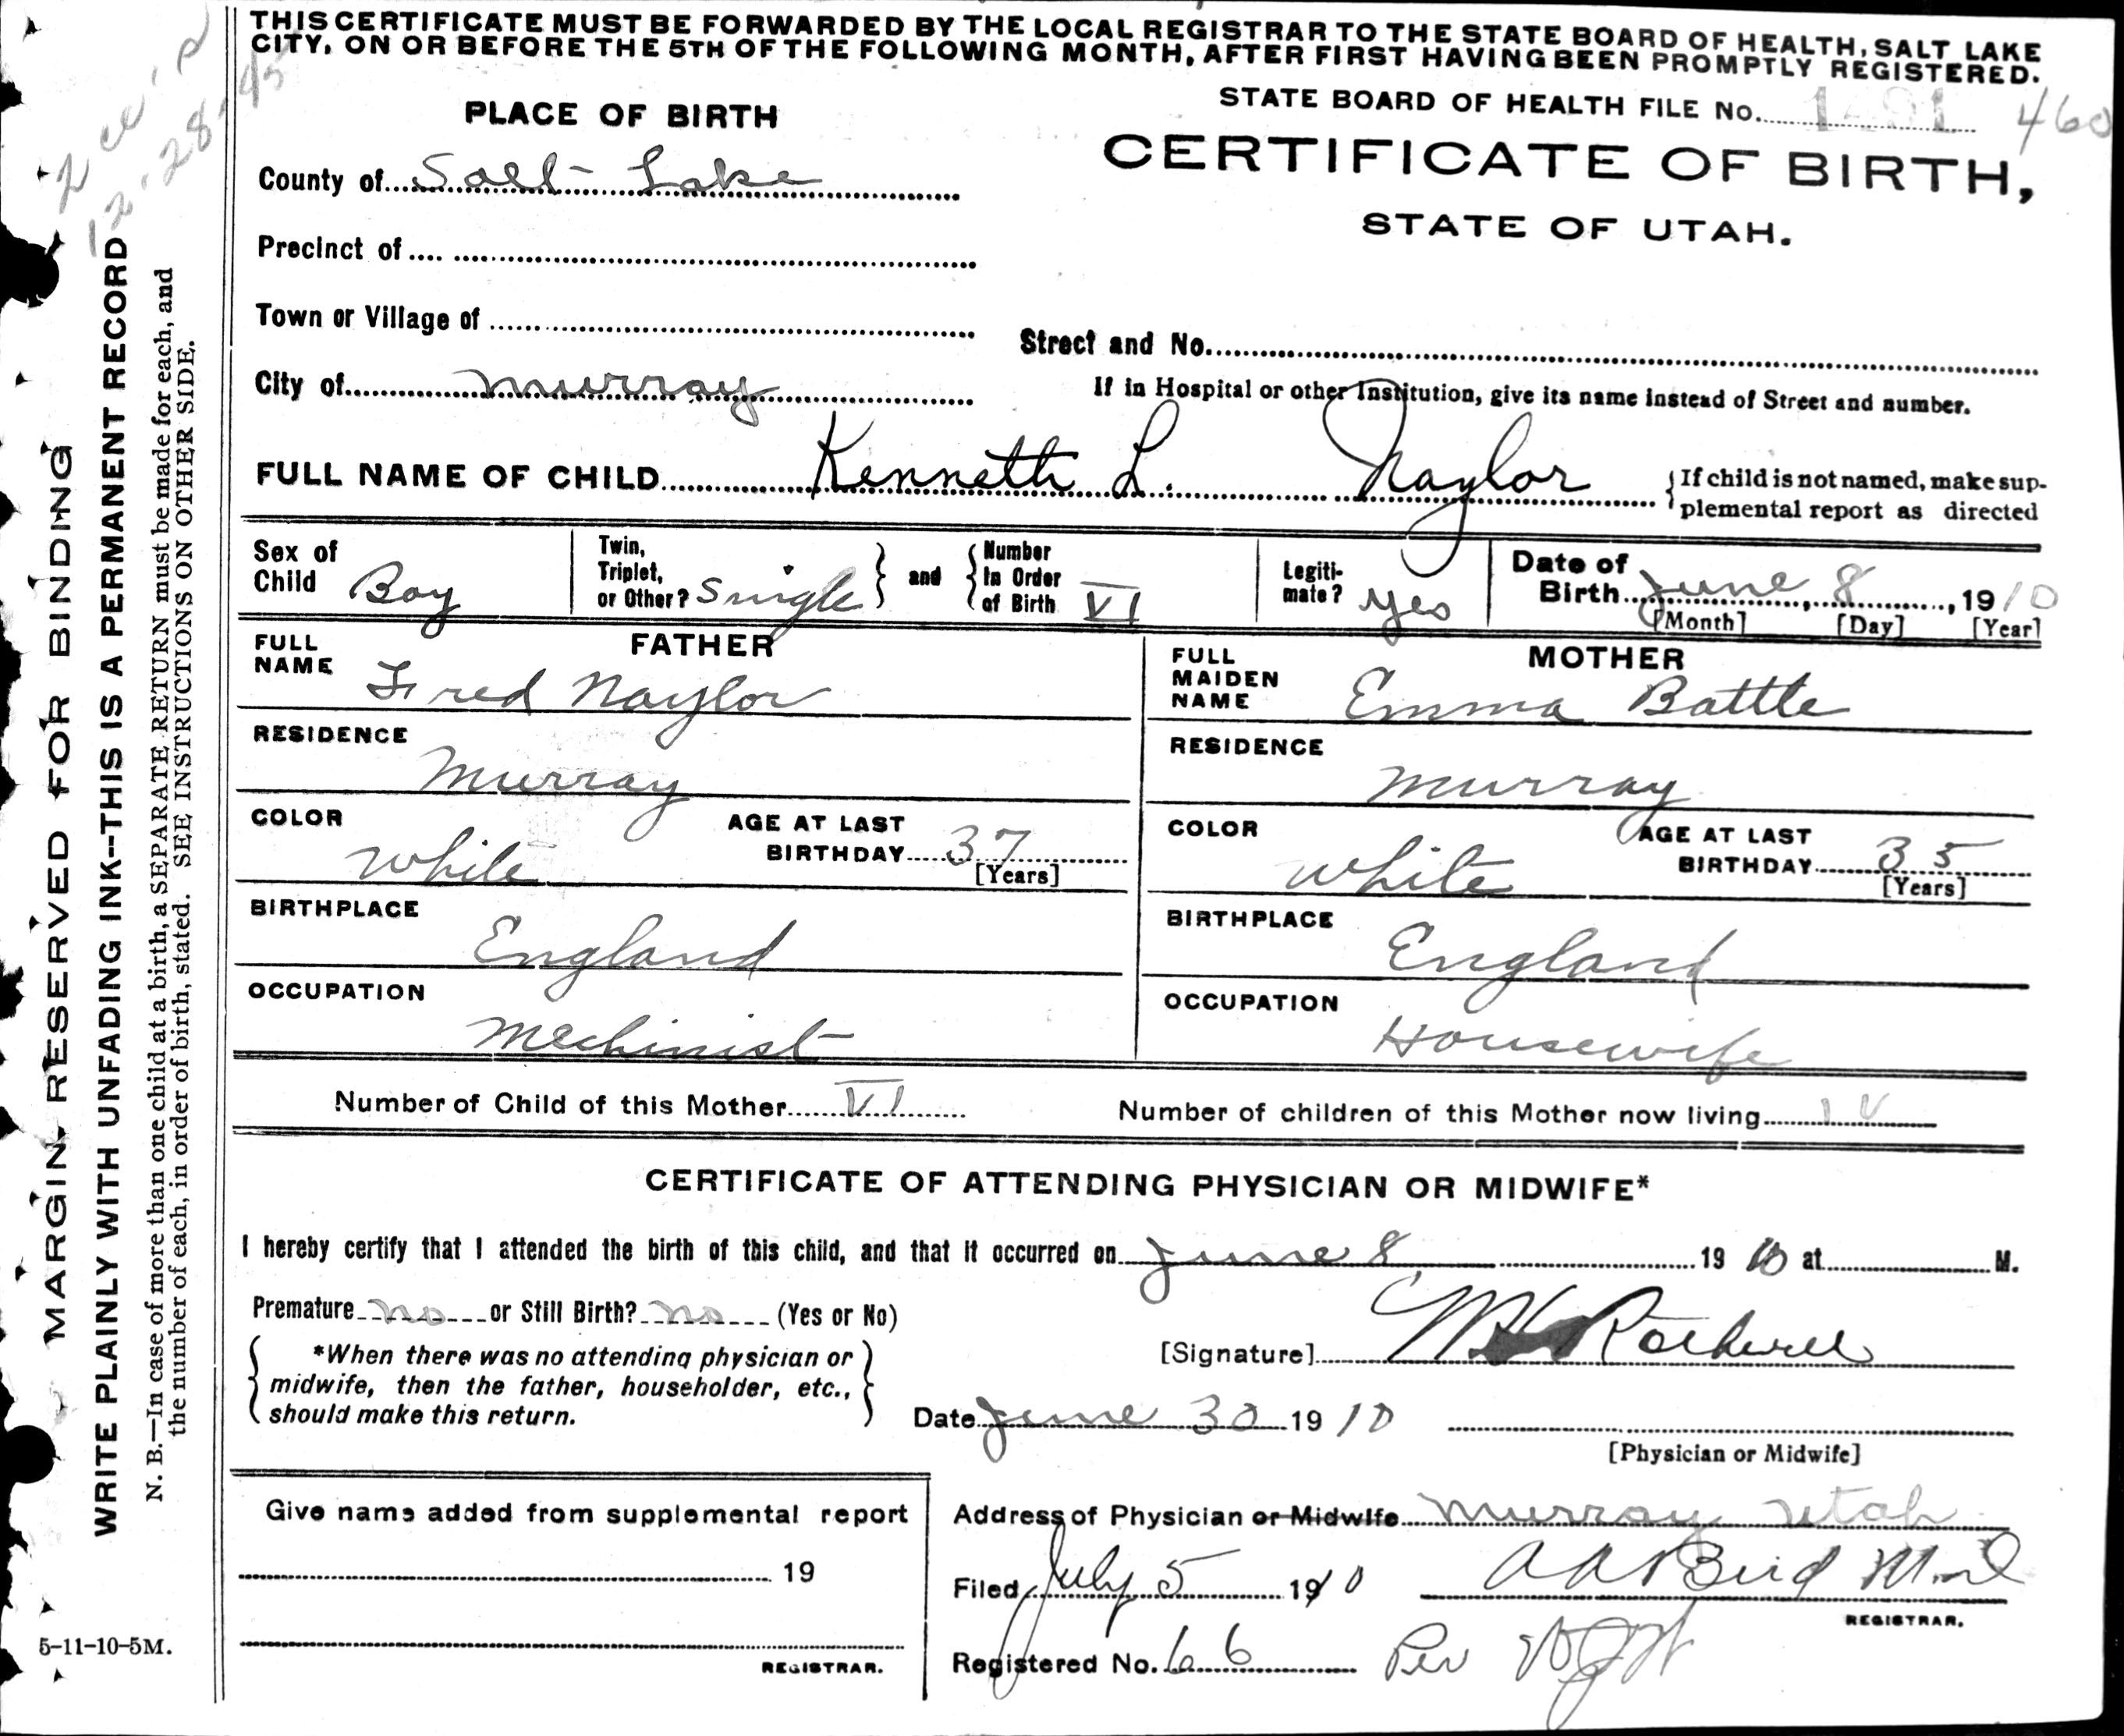 THIS CERTIFICATE MUST BE FORWARDED BY THE LOCAL REGISTRAR TO THE STATE BOARD OF HEALTH, SALT LAKE
CITY, ON OR BEFORE THE 5TH OF THE FOLLOWING MONTH, AFTER FIRST HAVING BEEN PROMPTLY REGISTERED.
STATE BOARD OF HEALTH FILE No. 460
PLACE OF BIRTH
CERTIFICATE OF BIRTH,
STATE OF UTAH.
County of Salt Lake
Precinct of
Town or Village of
Street and No.
City of Murray
If in Hospital or other Institution, give its name instead of Street and number.
FULL NAME OF CHILD Kenneth L. Naylor
If child is not named, make sup-
plemental report as directed
Sex of Child Boy
Twin, Triplet, or Other? Single and Number In Order of Birth VI
Legiti-mate? Yes
Date of Birth June 8, 1910
[Month] [Day] [Year]
FATHER
FULL NAME Fred Naylor
RESIDENCE Murray
COLOR White
AGE AT LAST BIRTHDAY 37
[Years]
BIRTHPLACE England
OCCUPATION Mechinist
MOTHER
FULL MAIDEN NAME Emma Battle
RESIDENCE Murray
COLOR White
AGE AT LAST BIRTHDAY 35
[Years]
BIRTHPLACE England
OCCUPATION Housewife
Number of Child of this Mother VI
Number of children of this Mother now living IV
CERTIFICATE OF ATTENDING PHYSICIAN OR MIDWIFE*
I hereby certify that I attended the birth of this child, and that it occurred on June 8 1910 at M.
Premature no or Still Birth? no (Yes or No)
*When there was no attending physician or
midwife, then the father, householder, etc.,
should make this return.
[Signature] Rothwell
Date June 30 1910
[Physician or Midwife]
Give name added from supplemental report
19
REGISTRAR.
Address of Physician or Midwife Murray Utah
Filed July 5 1910 A A Bird M.D
REGISTRAR.
Registered No. 66 Per
MARGIN RESERVED FOR BINDING
WRITE PLAINLY WITH UNFADING INK--THIS IS A PERMANENT RECORD
N. B.—In case of more than one child at a birth, a SEPARATE RETURN must be made for each, and
the number of each, in order of birth, stated. SEE INSTRUCTIONS ON OTHER SIDE.
12-28-45
5-11-10-5M.